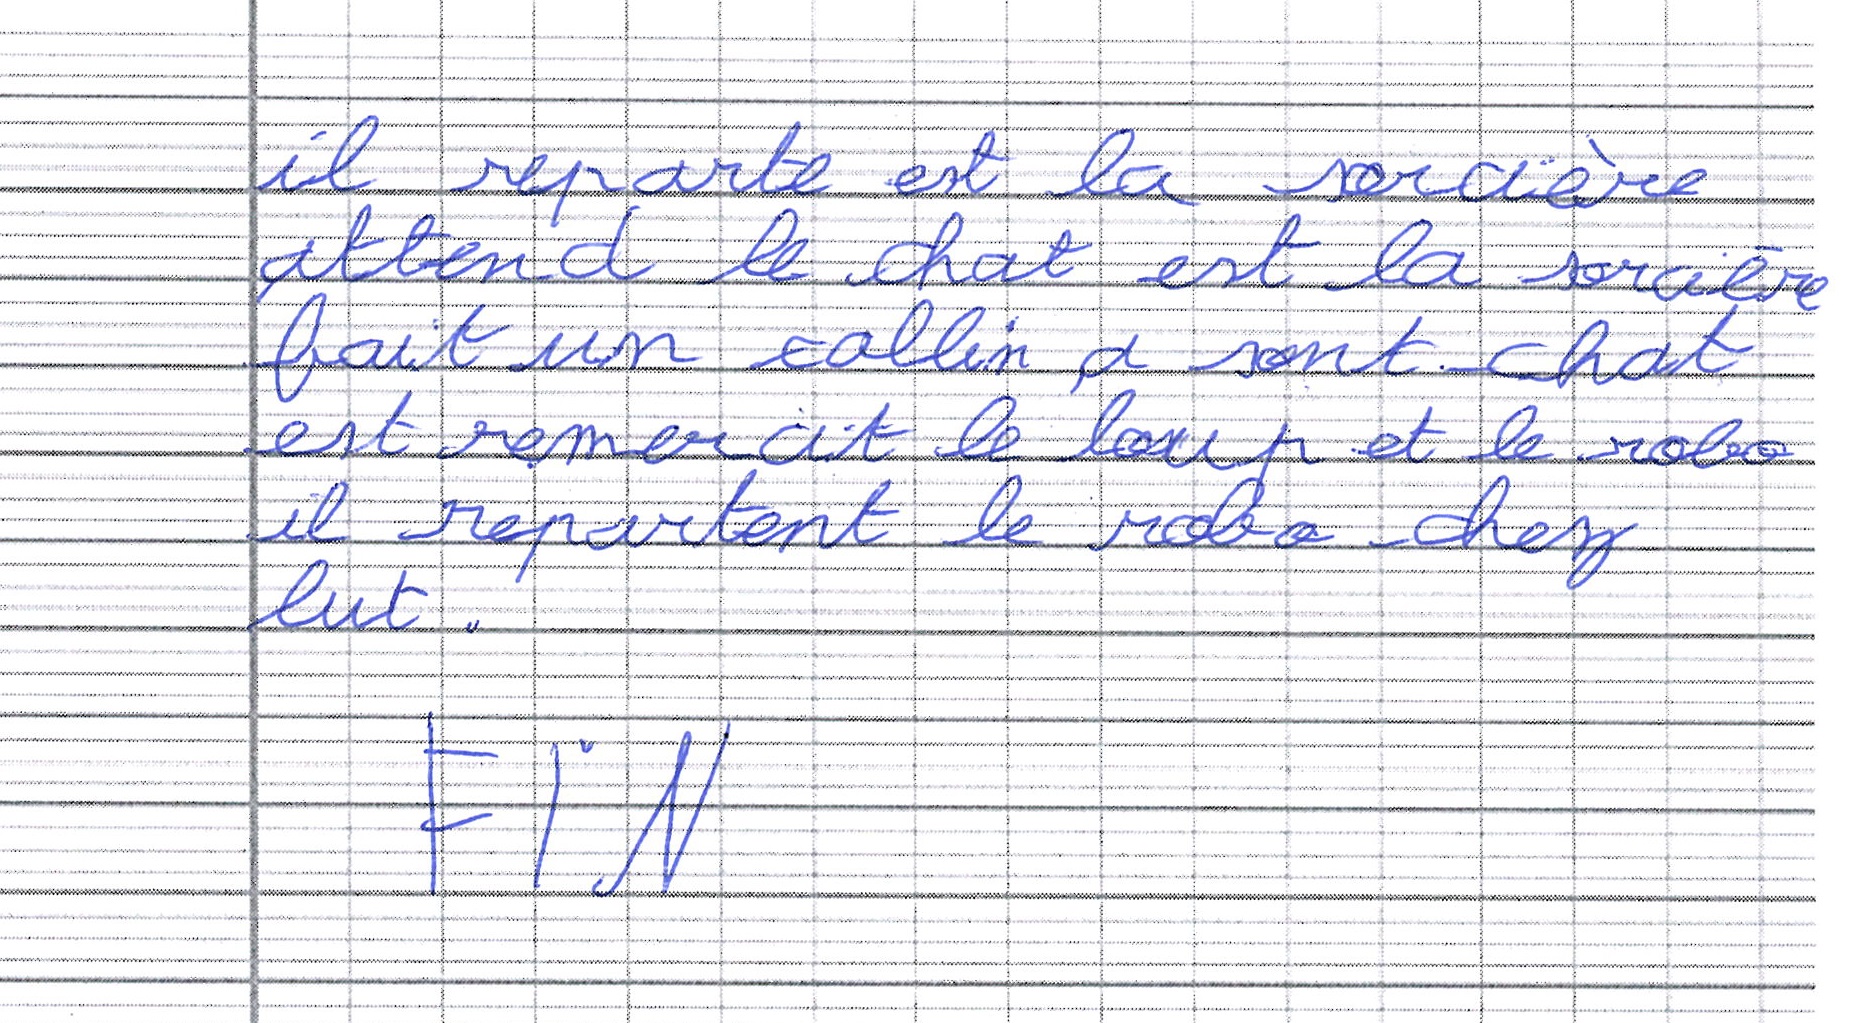 il reparte est la sorcière
attend le chat est la sorcière
fait un callin a sont chat
est remercit le loup et le robo
il repartent le robo chez
lut.
FIN